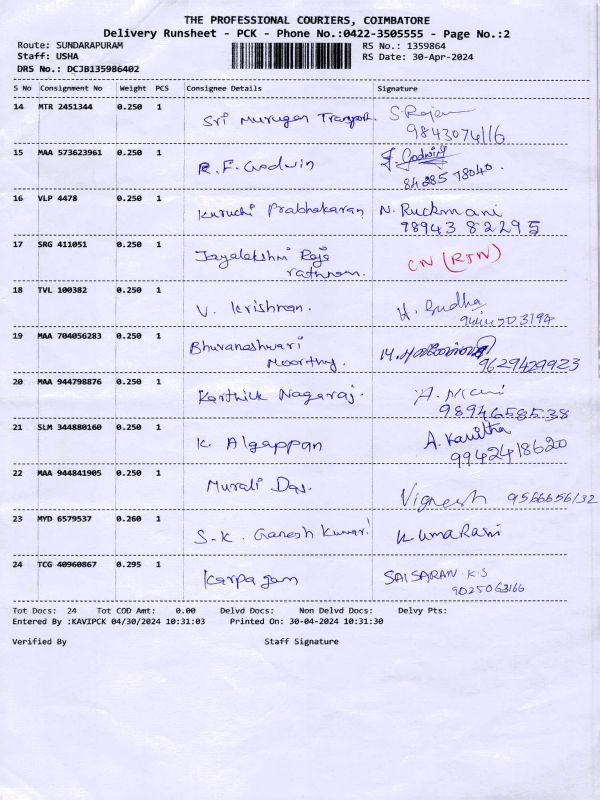 THE PROFESSIONAL COURIERS, COIMBATORE
Delivery Runsheet - PCK - Phone No.:0422-3505555 - Page No.:2
Route: SUNDARAPURAM RS No.: 1359864
Staff: USHA RS Date: 30-Apr-2024
DRS No.: DCJB135986402
S No Consignment No Weight PCS Consignee Details Signature
14 MTR 2451344 0.250 1 Sri Murugan Transport. S. Rajan
9843074116
15 MAA 573623961 0.250 1 R.F. Godwin F. Godwin
84285 78040.
16 VLP 4478 0.250 1 Kuruchi Prabhakaran N. Ruckmani
98943 82295
17 SRG 411051 0.250 1 Jayalakshmi Raja CN (RTN)
rathnam.
18 TVL 100382 0.250 1 V. Krishnan. H. Sudha
19 MAA 704056283 0.250 1 Bhuvaneshwari
Moorthy. 9629429923
20 MAA 944798876 0.250 1 Karthick Nagaraj. A. Mani
9894658538
21 SLM 344880160 0.250 1 K. Algappan A. Kavitha
9942418620
22 MAA 944841905 0.250 1 Murali Das. Vignesh 9566656132
23 MYD 6579537 0.260 1 S.K. Ganesh Kumar! Kumarani
24 TCG 40960867 0.295 1 Karpagam SAISARAN K.S
9025063166
Tot Docs: 24 Tot COD Amt: 0.00 Delvd Docs: Non Delvd Docs: Delvy Pts:
Entered By :KAVIPCK 04/30/2024 10:31:03 Printed On: 30-04-2024 10:31:30
Verified By Staff Signature